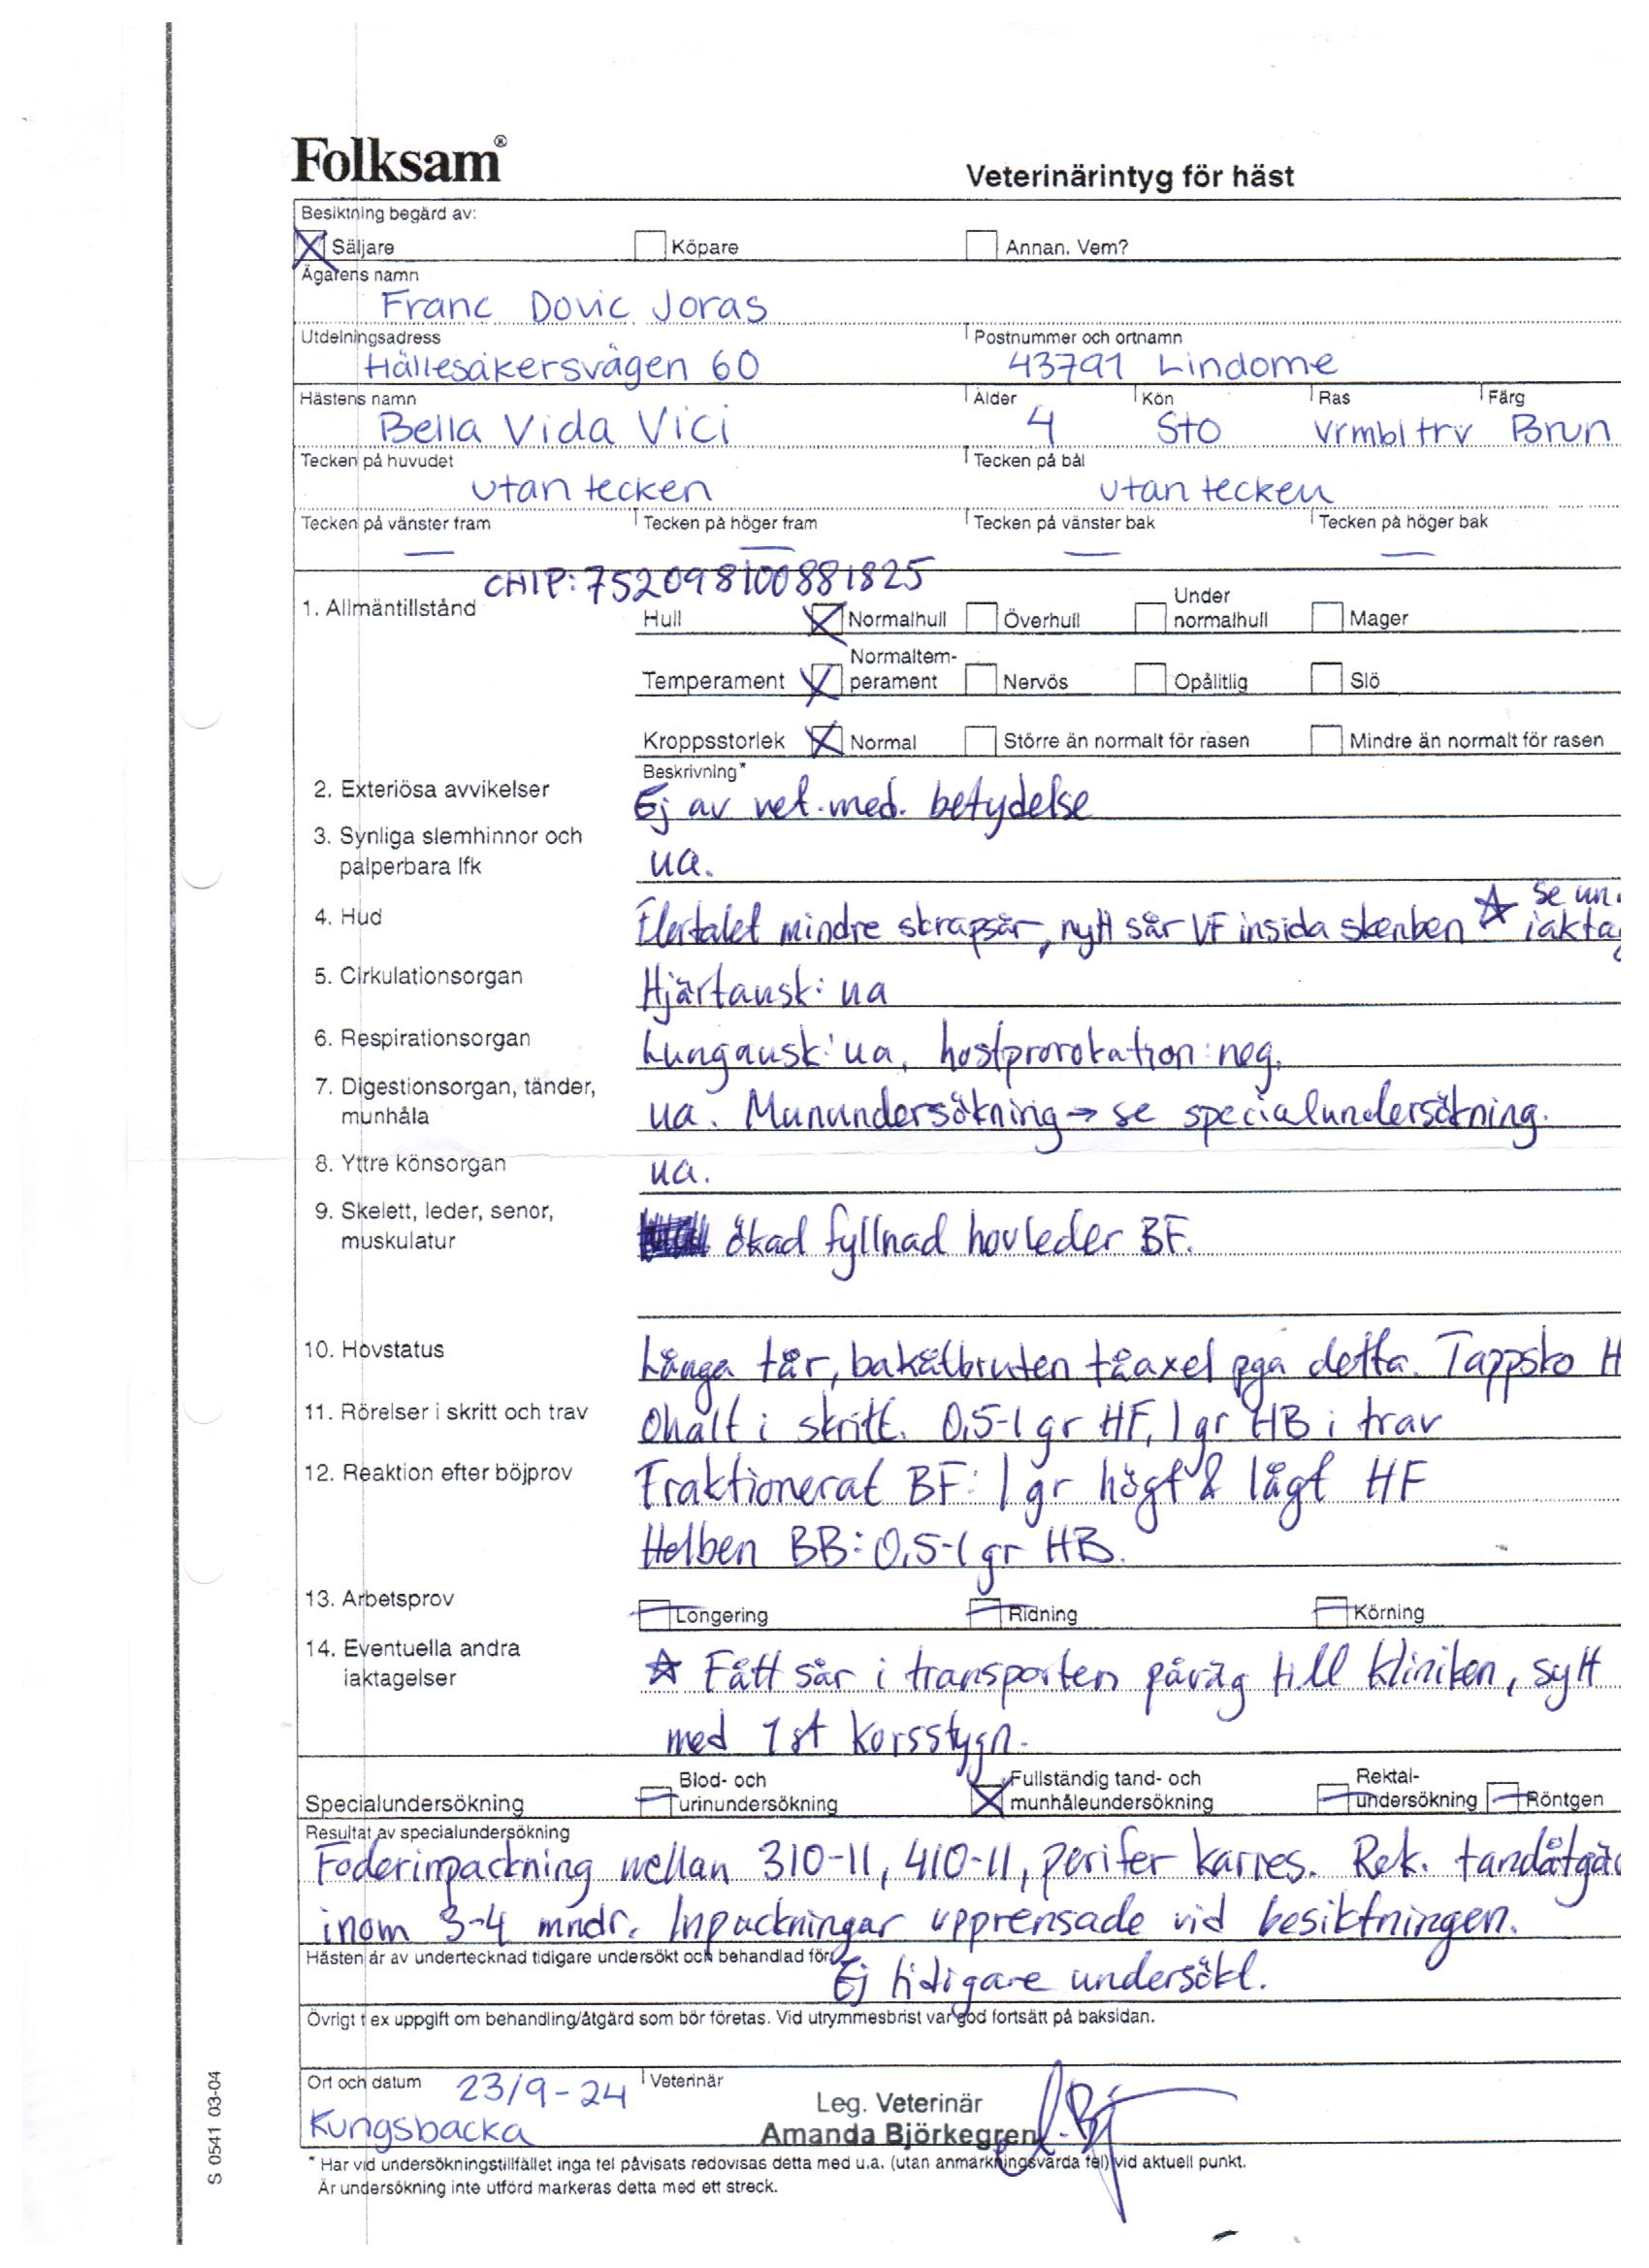 Folksam®
Veterinärintyg för häst
Besiktning begärd av:
Säljare Köpare Annan. Vem?
Ägarens namn
Franc Dovic Joras
Utdelningsadress Postnummer och ortnamn
Hällesåkersvägen 60 43791 Lindome
Hästens namn Ålder Kön Ras Färg
Bella Vida Vici 4 Sto vrmbltrv Brun
Tecken på huvudet Tecken på bål
utan tecken utan tecken
Tecken på vänster fram Tecken på höger fram Tecken på vänster bak Tecken på höger bak
— — — —
CHIP: 752098100881825
1. Allmäntillstånd Hull Normalhull Överhull Under normalhull Mager
Temperament Normaltem-perament Nervös Opålitlig Slö
Kroppsstorlek Normal Större än normalt för rasen Mindre än normalt för rasen
Beskrivning*
2. Exteriösa avvikelser Ej av vet.med. betydelse
3. Synliga slemhinnor och
palperbara lfk ua.
4. Hud Flertalet mindre skrapsår, nytt sår VF insida skenben ☆ se un.
iakta
5. Cirkulationsorgan Hjärtausk: ua
6. Respirationsorgan Lungausk: ua, hostprovokation: neg.
7. Digestionsorgan, tänder,
munhåla ua. Munundersökning → se specialundersökning.
8. Yttre könsorgan ua.
9. Skelett, leder, senor,
muskulatur ökad fyllnad hovleder BF.
10. Hovstatus Långa tår, bakåtbruten tåaxel pga detta. Tappsko H
11. Rörelser i skritt och trav Ohalt i skritt. 0,5-1 gr HF, 1 gr HB i trav
12. Reaktion efter böjprov Fraktionerat BF: 1 gr högt & lågt HF
Helben BB: 0,5-1 gr HB.
13. Arbetsprov Longering Ridning Körning
14. Eventuella andra
iaktagelser ☆ Fått sår i transporten påväg till kliniken, sytt
med 1 st korsstygn.
Specialundersökning Blod- och urinundersökning Fullständig tand- och munhåleundersökning Rektal-undersökning Röntgen
Resultat av specialundersökning
Foderinpackning mellan 310-11, 410-11, perifer karies. Rek. tandåtgär
inom 3-4 mndr. Inpackningar upprensade vid besiktningen.
Hästen är av undertecknad tidigare undersökt och behandlad för:
Ej tidigare undersökt.
Övrigt t ex uppgift om behandling/åtgärd som bör företas. Vid utrymmesbrist var god fortsätt på baksidan.
Ort och datum 23/9-24 Veterinär
Kungsbacka
Leg. Veterinär
Amanda Björkegren
* Har vid undersökningstillfället inga fel påvisats redovisas detta med u.a. (utan anmärkningsvärda fel) vid aktuell punkt.
Är undersökning inte utförd markeras detta med ett streck.
S 0541 03-04